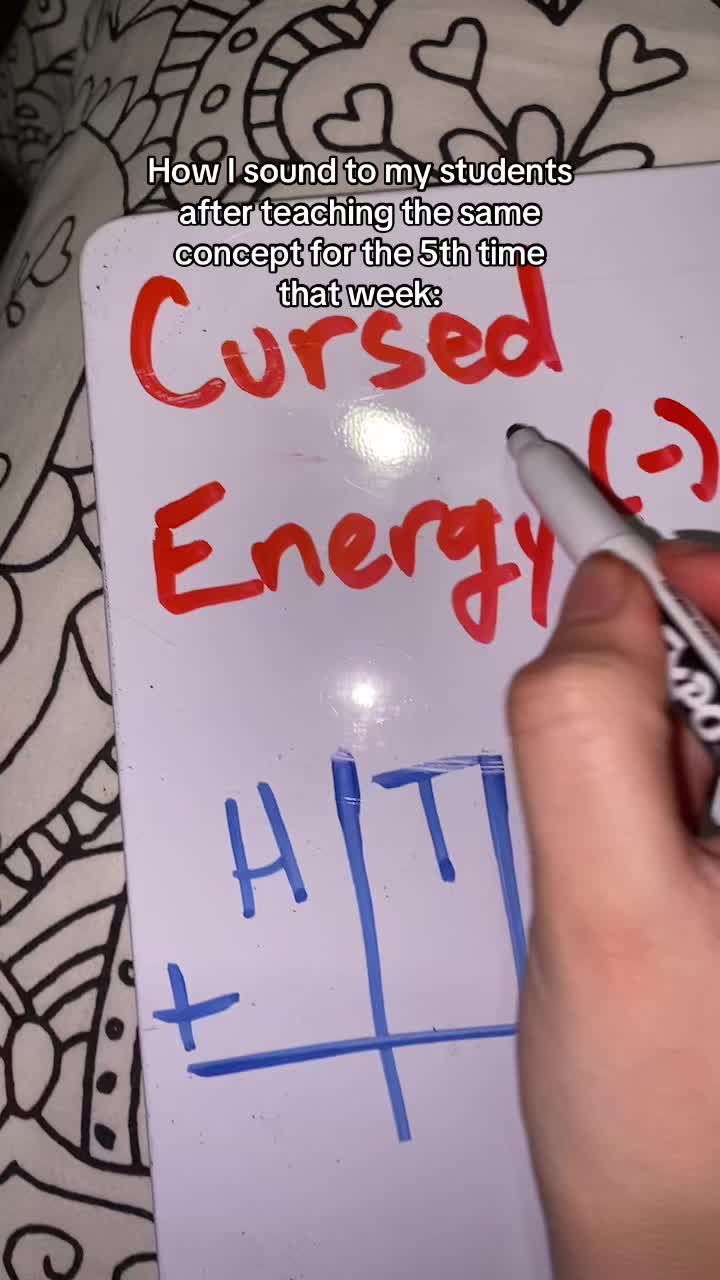 How I sound to my students
after teaching the same
concept for the 5th time
that week:
Cursed
Energy (-)
H T
+
EXPO